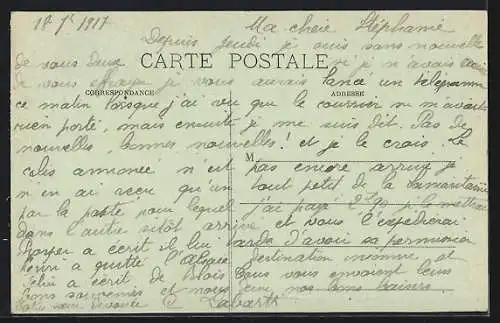 18 7re 1917
Ma chère Stéphanie
Depuis jeudi je suis sans nouvelle
de vous deux si je n'avais
CARTE POSTALE
de vous je vous aurais lancé un télégramme
CORRESPONDANCE
ADRESSE
ce matin lorsque j'ai vu que le courrier ne m'avait
rien porté, mais ensuite je me suis dit. Pas de
nouvelles, bonnes nouvelles! et je le crois. Le
M
colis annoncé n'est pas encore arrivé je
n'en ai reçu qu'un tout petit de la Samaritaine
par la poste pour lequel j'ai payé
dans l'autre sitôt arrivé et vous l'expédierai
a écrit il lui tarde d'avoir sa permission
Henri a quitté l'Alsace destination inconnue et
a écrit de Blois Tous vous envoient leurs
bons souvenirs et nous deux, nos bons baisers.
Labarthe